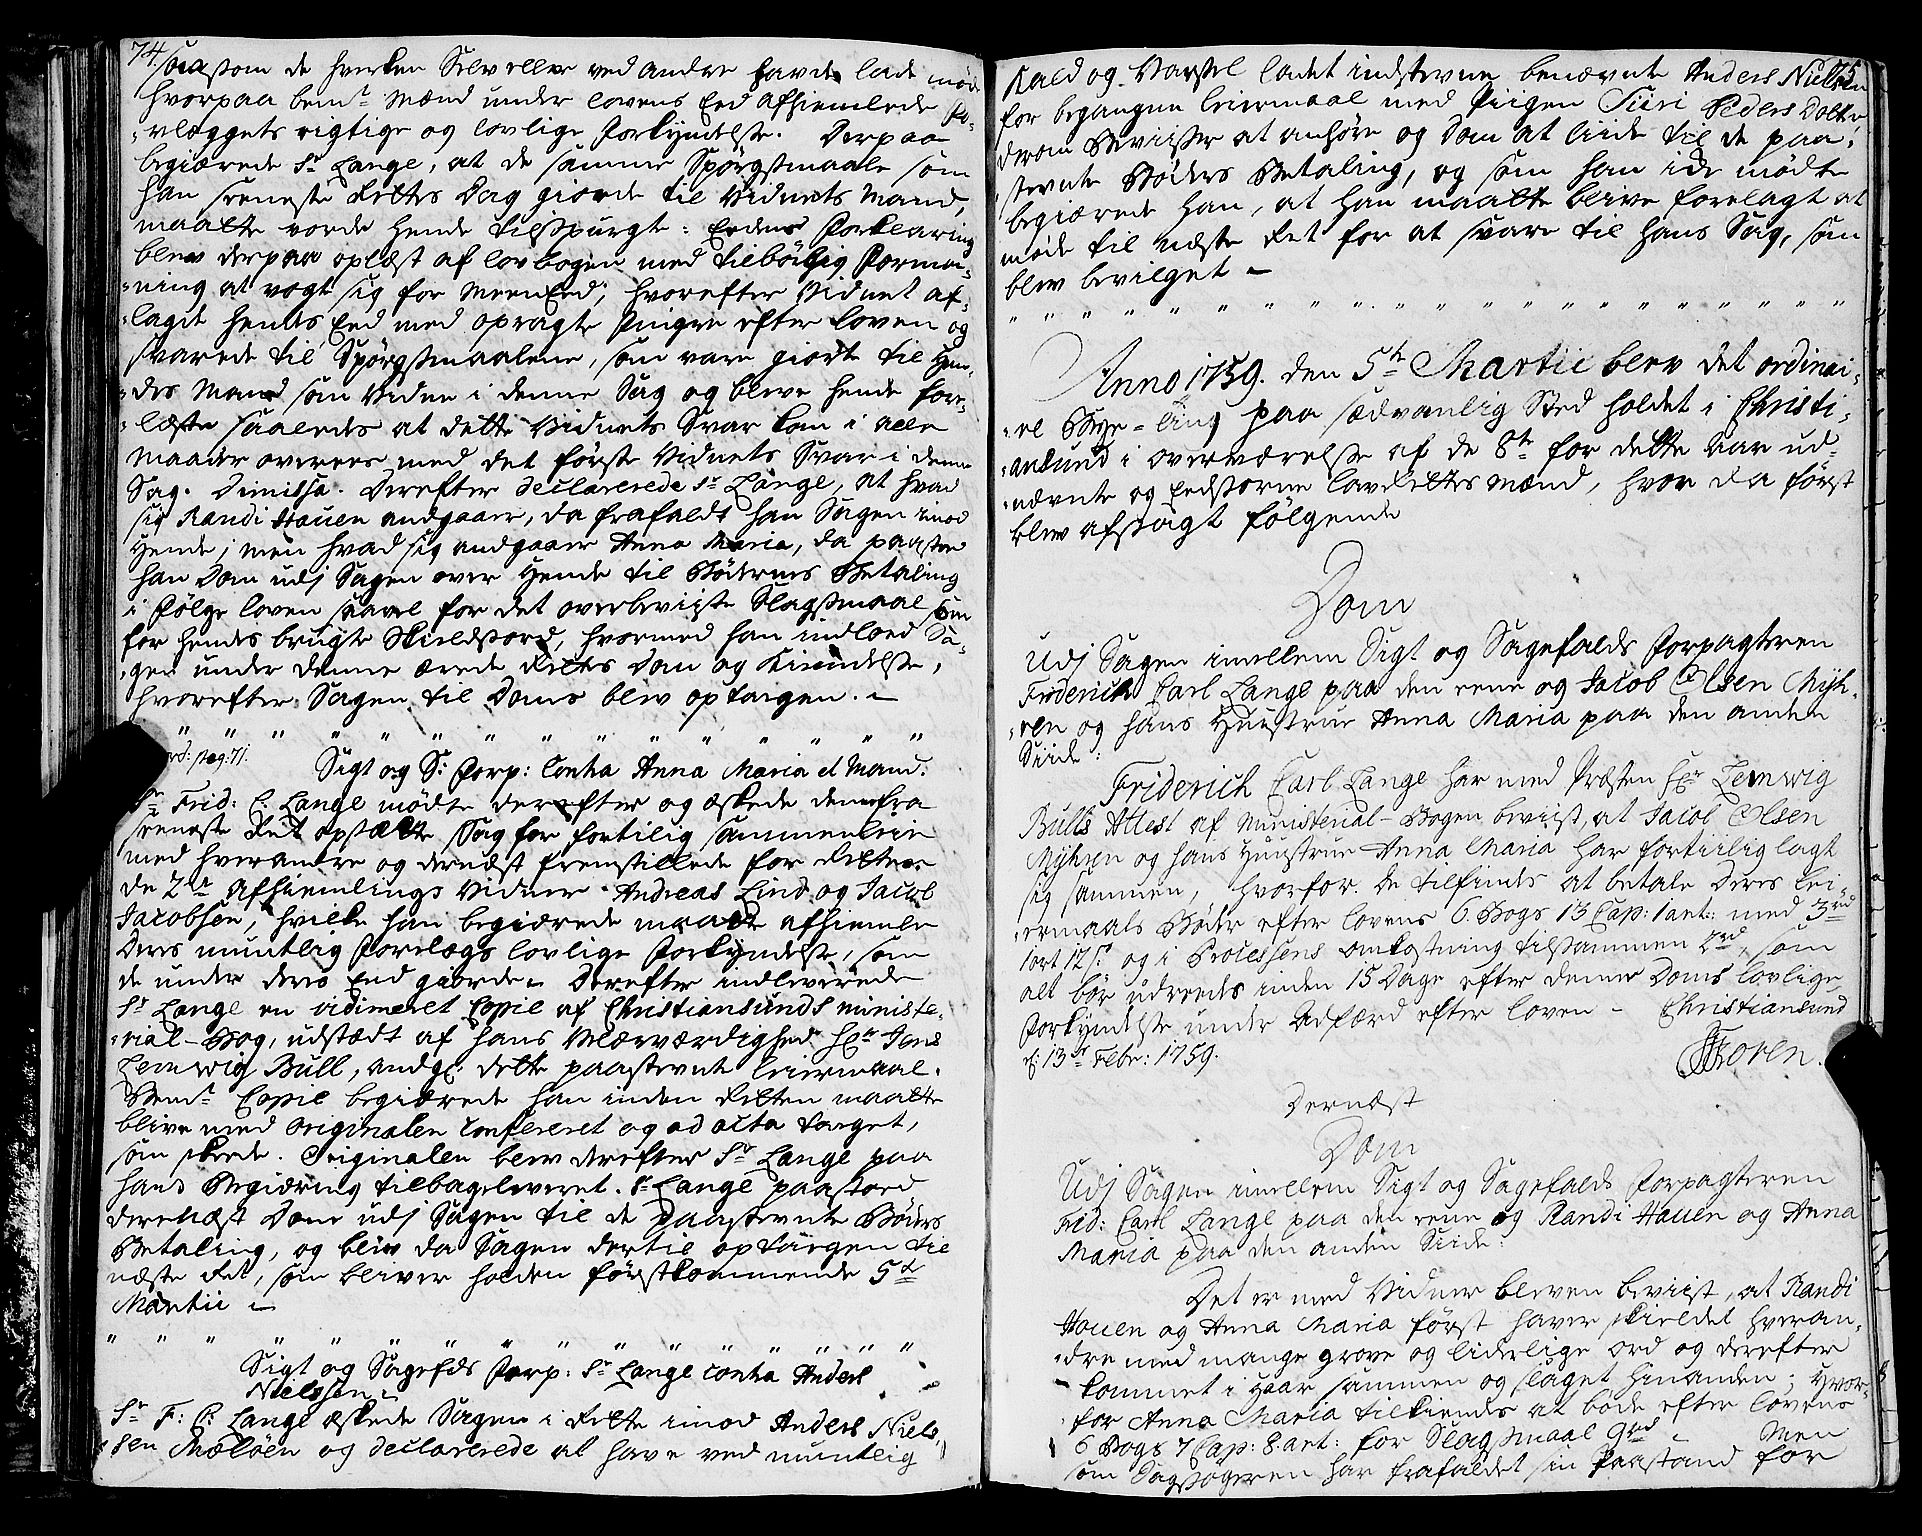 74.
saasom de hverken Selv eller ved andre havde lade møde
hvorpaa bem.te Mænd under lovens Eed afhiemlede fo-
relæggets rigtige og lovlige Forkyndelse. Derpaa
begiærede Sr Lange, at de samme Spørgsmaale som
han seeneste Rettes Dag giorde til Vidnets Mand,
maatte vorde Hende tilspurgt: Eedens Forklaring
blev derpaa oplæst af lovbogen med tilbørlig Forma-
ning at vogte sig for MeenEed; hvorefter Vidnet af-
lagde hendes Eed med opragte Fingre efter loven og
svarede til Spørgsmaalene, som vare giorte til Hen-
des Mand som Vidne i denne Sag og bleve hende fore-
læste saaledes at dette Vidnets Svar kom i alle
Maader overeens med det første Vidnets Svar i denne
Sag. Dimissa. Derefter declarerede Sr Lange, at hvad
sig Randi Hauen andgaaer, da frafaldt han Sagen imod
Hende; men hvad sig andgaaer Anna Maria, da paastoed
han Dom udj Sagen over Hende til Bødernes Betaling
i Følge loven saavel for det overbeviiste Slagsmaal som
for hendes brugte Skieldsord, hvormed han indlod Sa-
gen under denne ærede Rettes Dom og Kiendelse,
hvorefter Sagen til Doms blev optagen. –
" " " " " " " " " " " " " "
vid: pag: 71. Sigt og S: Forp: Contra Anna Maria et Mand:
Sr Frid: C. Lange mødte derefter og æskede den fra
seeneste Ret opsatte Sag for fortilig sammenleie
med hverandre og dernæst fremstillede for Retten
de 2de afhiemlings Vidner Andreas Lind og Jacob
Jacobsen, hvilke han begiærede maatte afhiemle
Deres muntlig Forelægs lovlige Forkyndelse, som
de under deres Eed giorde. Derefter indleverede
Sr Lange en vidimeret Copie af Christiansunds ministe-
rial-Bog, udstædt af hans Velærværdighed Hr Jens
Lemwig Bull, andg: dette paastevnte leiermaal.
Bem.te Copie begiærede han inden Retten maatte
blive med Originalen confereret og ad acta taget,
som skeede. Originalen blev derefter Sr Lange paa
hans Begiæring tilbageleveret. Sr Lange paastoed
dernæst Dom udj Sagen til de paastevnte Bøders
Betaling, og blev da Sagen dertil optagen til
næste Ret, som bliver holden førstkommende 5te
Martii –
" " " " " " " " " " " "
Sigt og Sagefds Forp: Sr Lange contra Anders
Nielssen –
Sr F: C: Lange æskede Sagen i Rette imod Anders Niels-
sen Mæløen og declarerede at have ved muntlig
75
Kald og Varsel ladet indstevne benævnte Anders Nielsen
for begangne leiermaal med Piigen Siri Peders Datter
derom Beviiser at anhøre og Dom at liide til de paa-
stevnte Bøders Betaling, og som han ick mødte
begiærede han, at han maatte blive forelagt at
møde til næste Ret for at svare til hans Sag, som
blev bevilget –
" " " " " " " " " " " " " " " " " " "
Anno 1759. den 5te Martii blev det ordinai-
re Bye-Ting paa sædvanlig Sted holdet i Christi-
ansund i overværelse af de 8te for dette Aar ud-
nævnte og Eedsvorne lavrettesmænd, hvor da først
blev afsagt følgende
Dom
Udj Sagen imellem Sigt og Sagefalds Forpagteren
Friderich Carl Lange paa den eene og Jacob Olsen Myh-
ren og hans Huustrue Anna Maria paa den anden
Siide:
Friderich Carl Lange har med Præsten Hr Lemwig
Bulls Attest af Ministerial-Bogen beviist, at Jacob Olsen
Myhren og hans Huustrue Anna Maria har fortilig lagt
sig sammen, hvorfor De tilfindes at betale Deres lei-
ermaals Bøder efter lovens 6. Bogs 13 Cap: 1 art: med 3rd
1 ort 12 s. og i Processens omkostning tilsammen 2rd, som
alt bør udreedes inden 15 Dage efter denne Doms lovlige
Forkyndelse under Adfærd efter loven – Christiansund
d: 13de Febr: 1759.
Dernæst
Dom
Udj Sagen imellem Sigt og Sagefalds Forpagteren
Frid: Carl Lange paa den eene og Randi Hauen og Anna
Maria paa den anden Siide:
Det er med Vidner bleven beviist, at Randi
Hauen og Anna Maria først haver skieldet hveran-
dre med mange grove og liderlige ord og derefter
kommet i Haar sammen og slaget hinanden; Hvor-
for Anna Maria tilkiendes at bøde efter lovens
6 Bogs 7 Cap: 8. art: for Slagsmaal 9rd – Men
som Sagsøgeren har frafaldet sin Paastand for